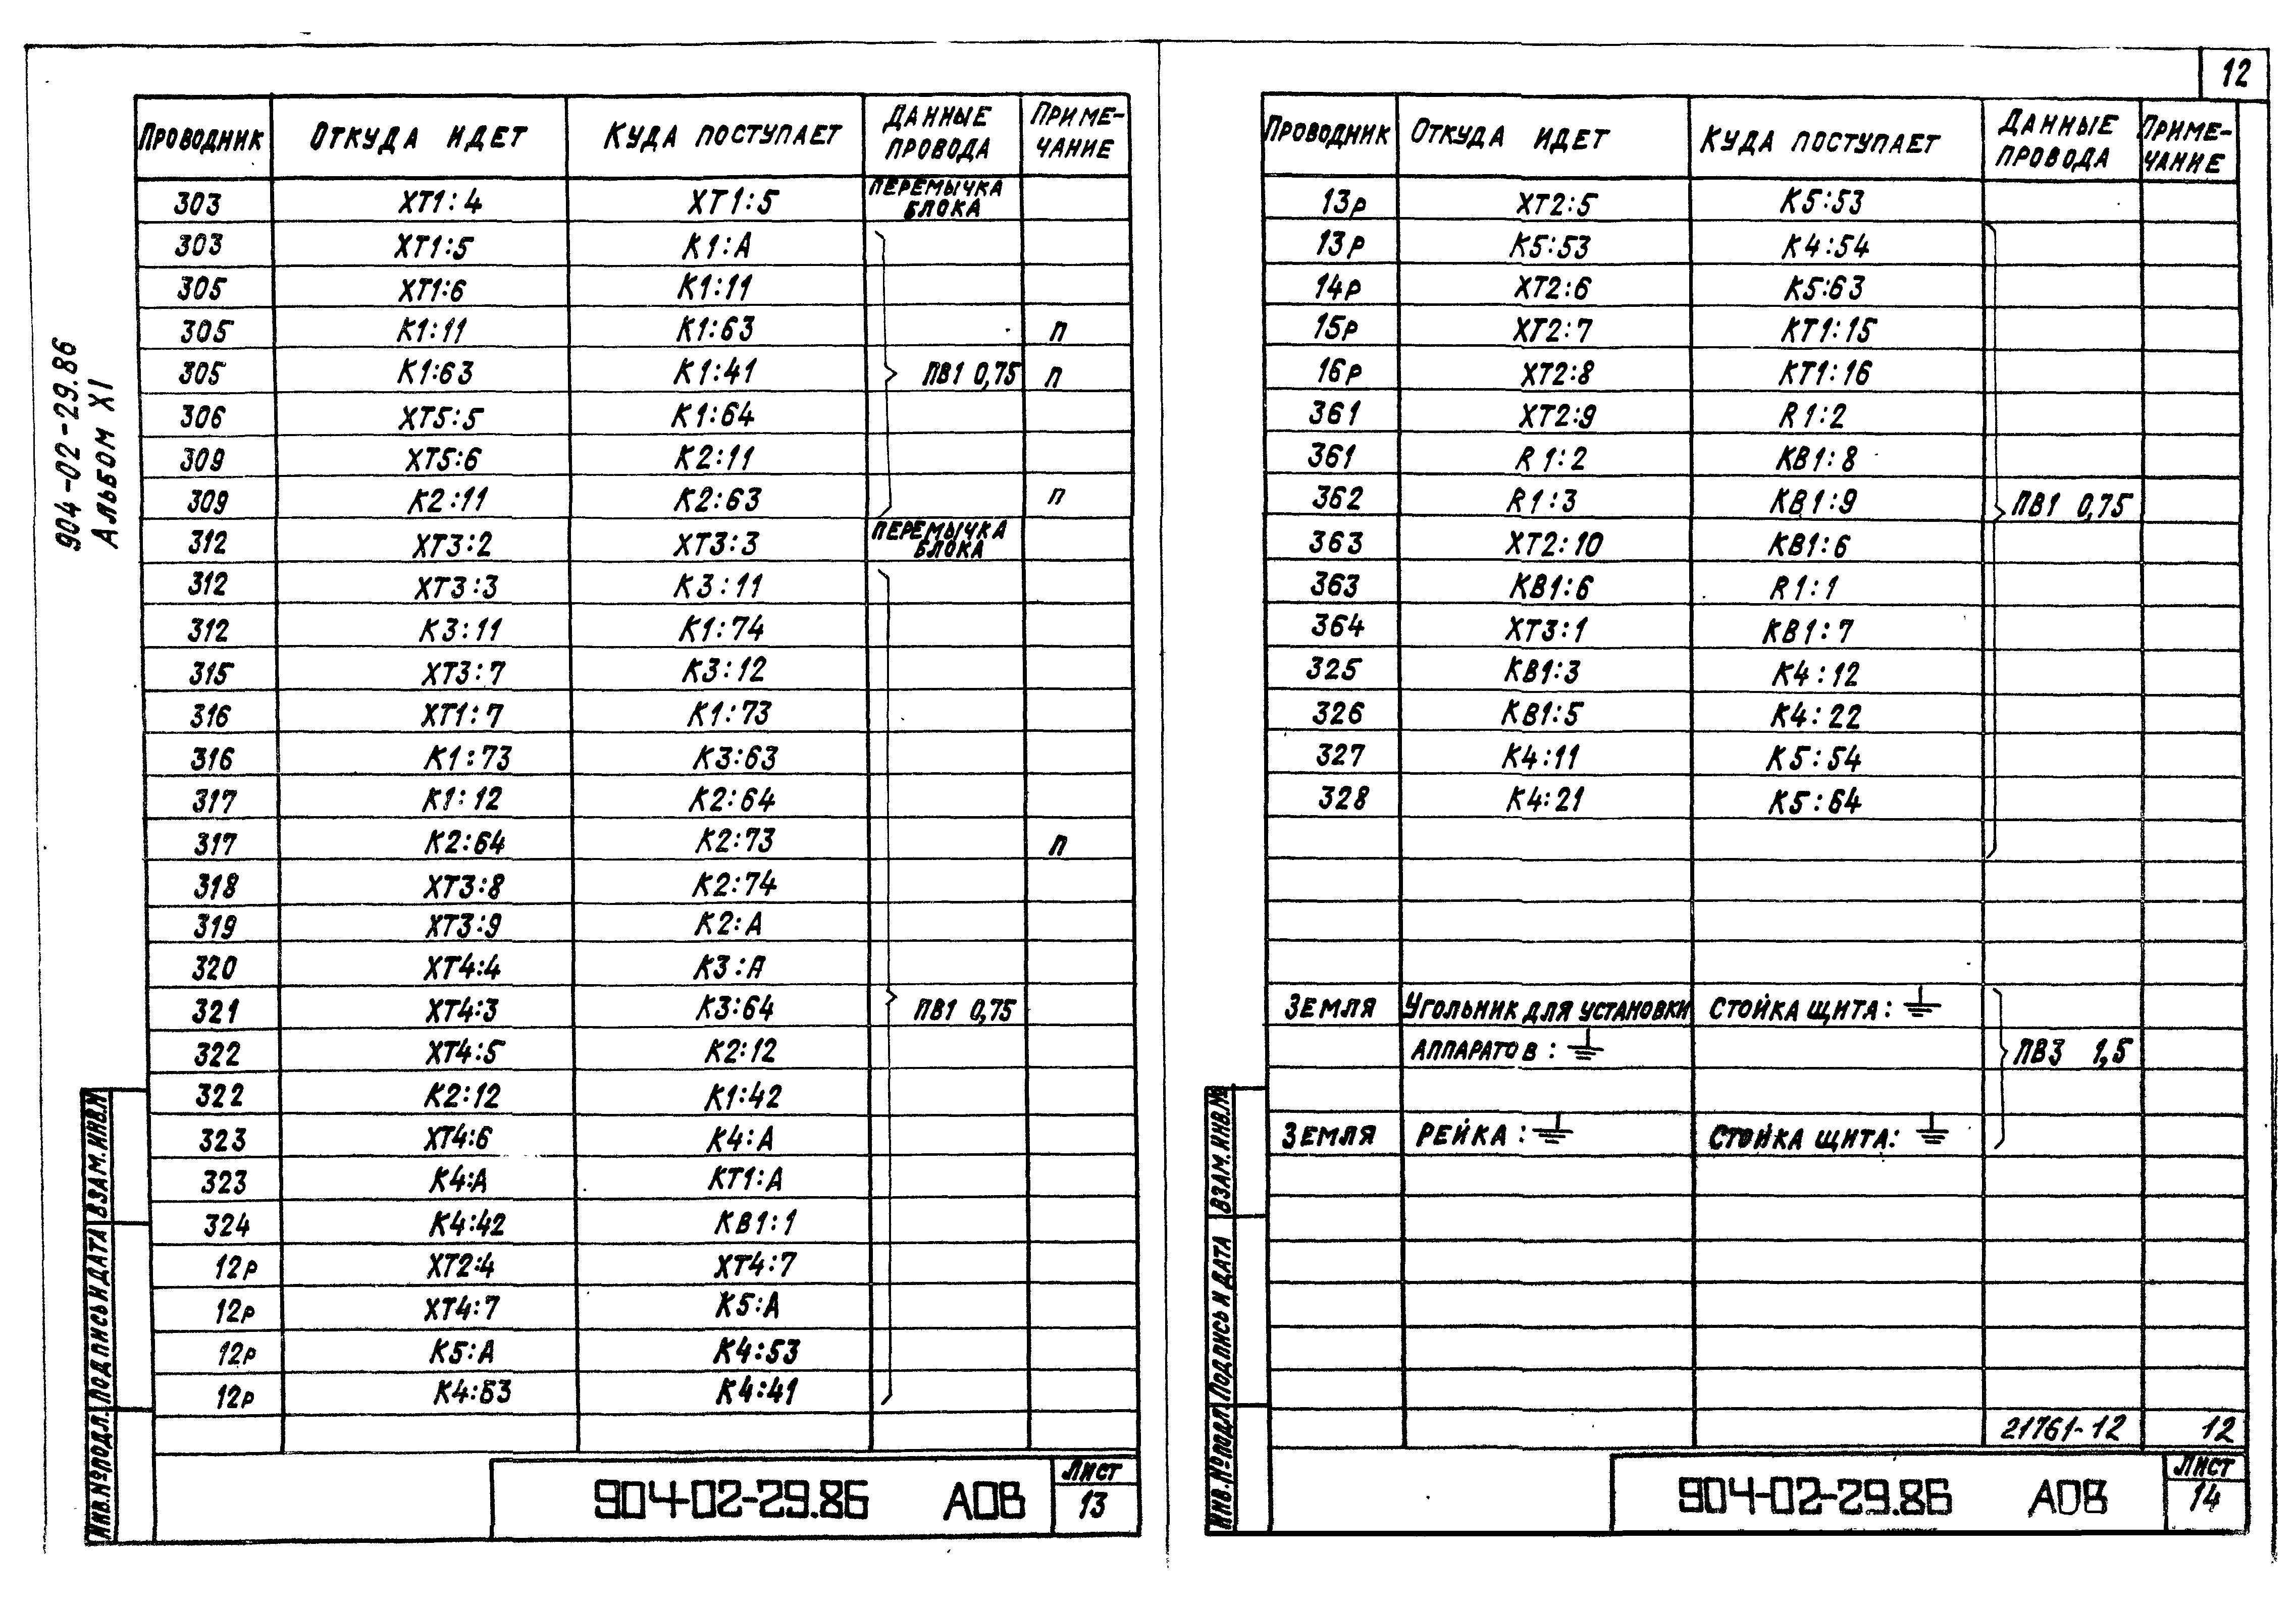 12
904-02-29.86
Альбом XI
Проводник Откуда идет Куда поступает Данные провода Приме-чание
303 XT1:4 XT1:5 Перемычка блока
303 XT1:5 К1:А
305 XT1:6 К1:11
305 К1:11 К1:63 п
305 К1:63 К1:41 ПВ1 0,75 п
306 XT5:5 К1:64
309 XT5:6 К2:11
309 К2:11 К2:63 п
312 XT3:2 XT3:3 Перемычка блока
312 XT3:3 К3:11
312 К3:11 К1:74
315 XT3:7 К3:12
316 XT1:7 К1:73
316 К1:73 К3:63
317 К1:12 К2:64
317 К2:64 К2:73 п
318 XT3:8 К2:74
319 XT3:9 К2:А
320 XT4:4 К3:А
321 XT4:3 К3:64 ПВ1 0,75
322 XT4:5 К2:12
322 К2:12 К1:42
323 XT4:6 К4:А
323 К4:А КТ1:А
324 К4:42 КВ1:1
12р XT2:4 XT4:7
12р XT4:7 К5:А
12р К5:А К4:53
12р К4:53 К4:41
Инв.№подл. Подпись и дата Взам.инв.№
904-02-29.86 АОВ
Лист
13
Проводник Откуда идет Куда поступает Данные провода Приме-чание
13р XT2:5 К5:53
13р К5:53 К4:54
14р XT2:6 К5:63
15р XT2:7 КТ1:15
16р XT2:8 КТ1:16
361 XT2:9 R1:2
361 R1:2 КВ1:8
362 R1:3 КВ1:9 ПВ1 0,75
363 XT2:10 КВ1:6
363 КВ1:6 R1:1
364 XT3:1 КВ1:7
325 КВ1:3 К4:12
326 КВ1:5 К4:22
327 К4:11 К5:54
328 К4:21 К5:64
Земля Угольник для установки Стойка щита: ⏚
аппаратов: ⏚ ПВ3 1,5
Земля Рейка: ⏚ Стойка щита: ⏚
21761-12 12
Инв.№подл. Подпись и дата Взам.инв.№
904-02-29.86 АОВ
Лист
14